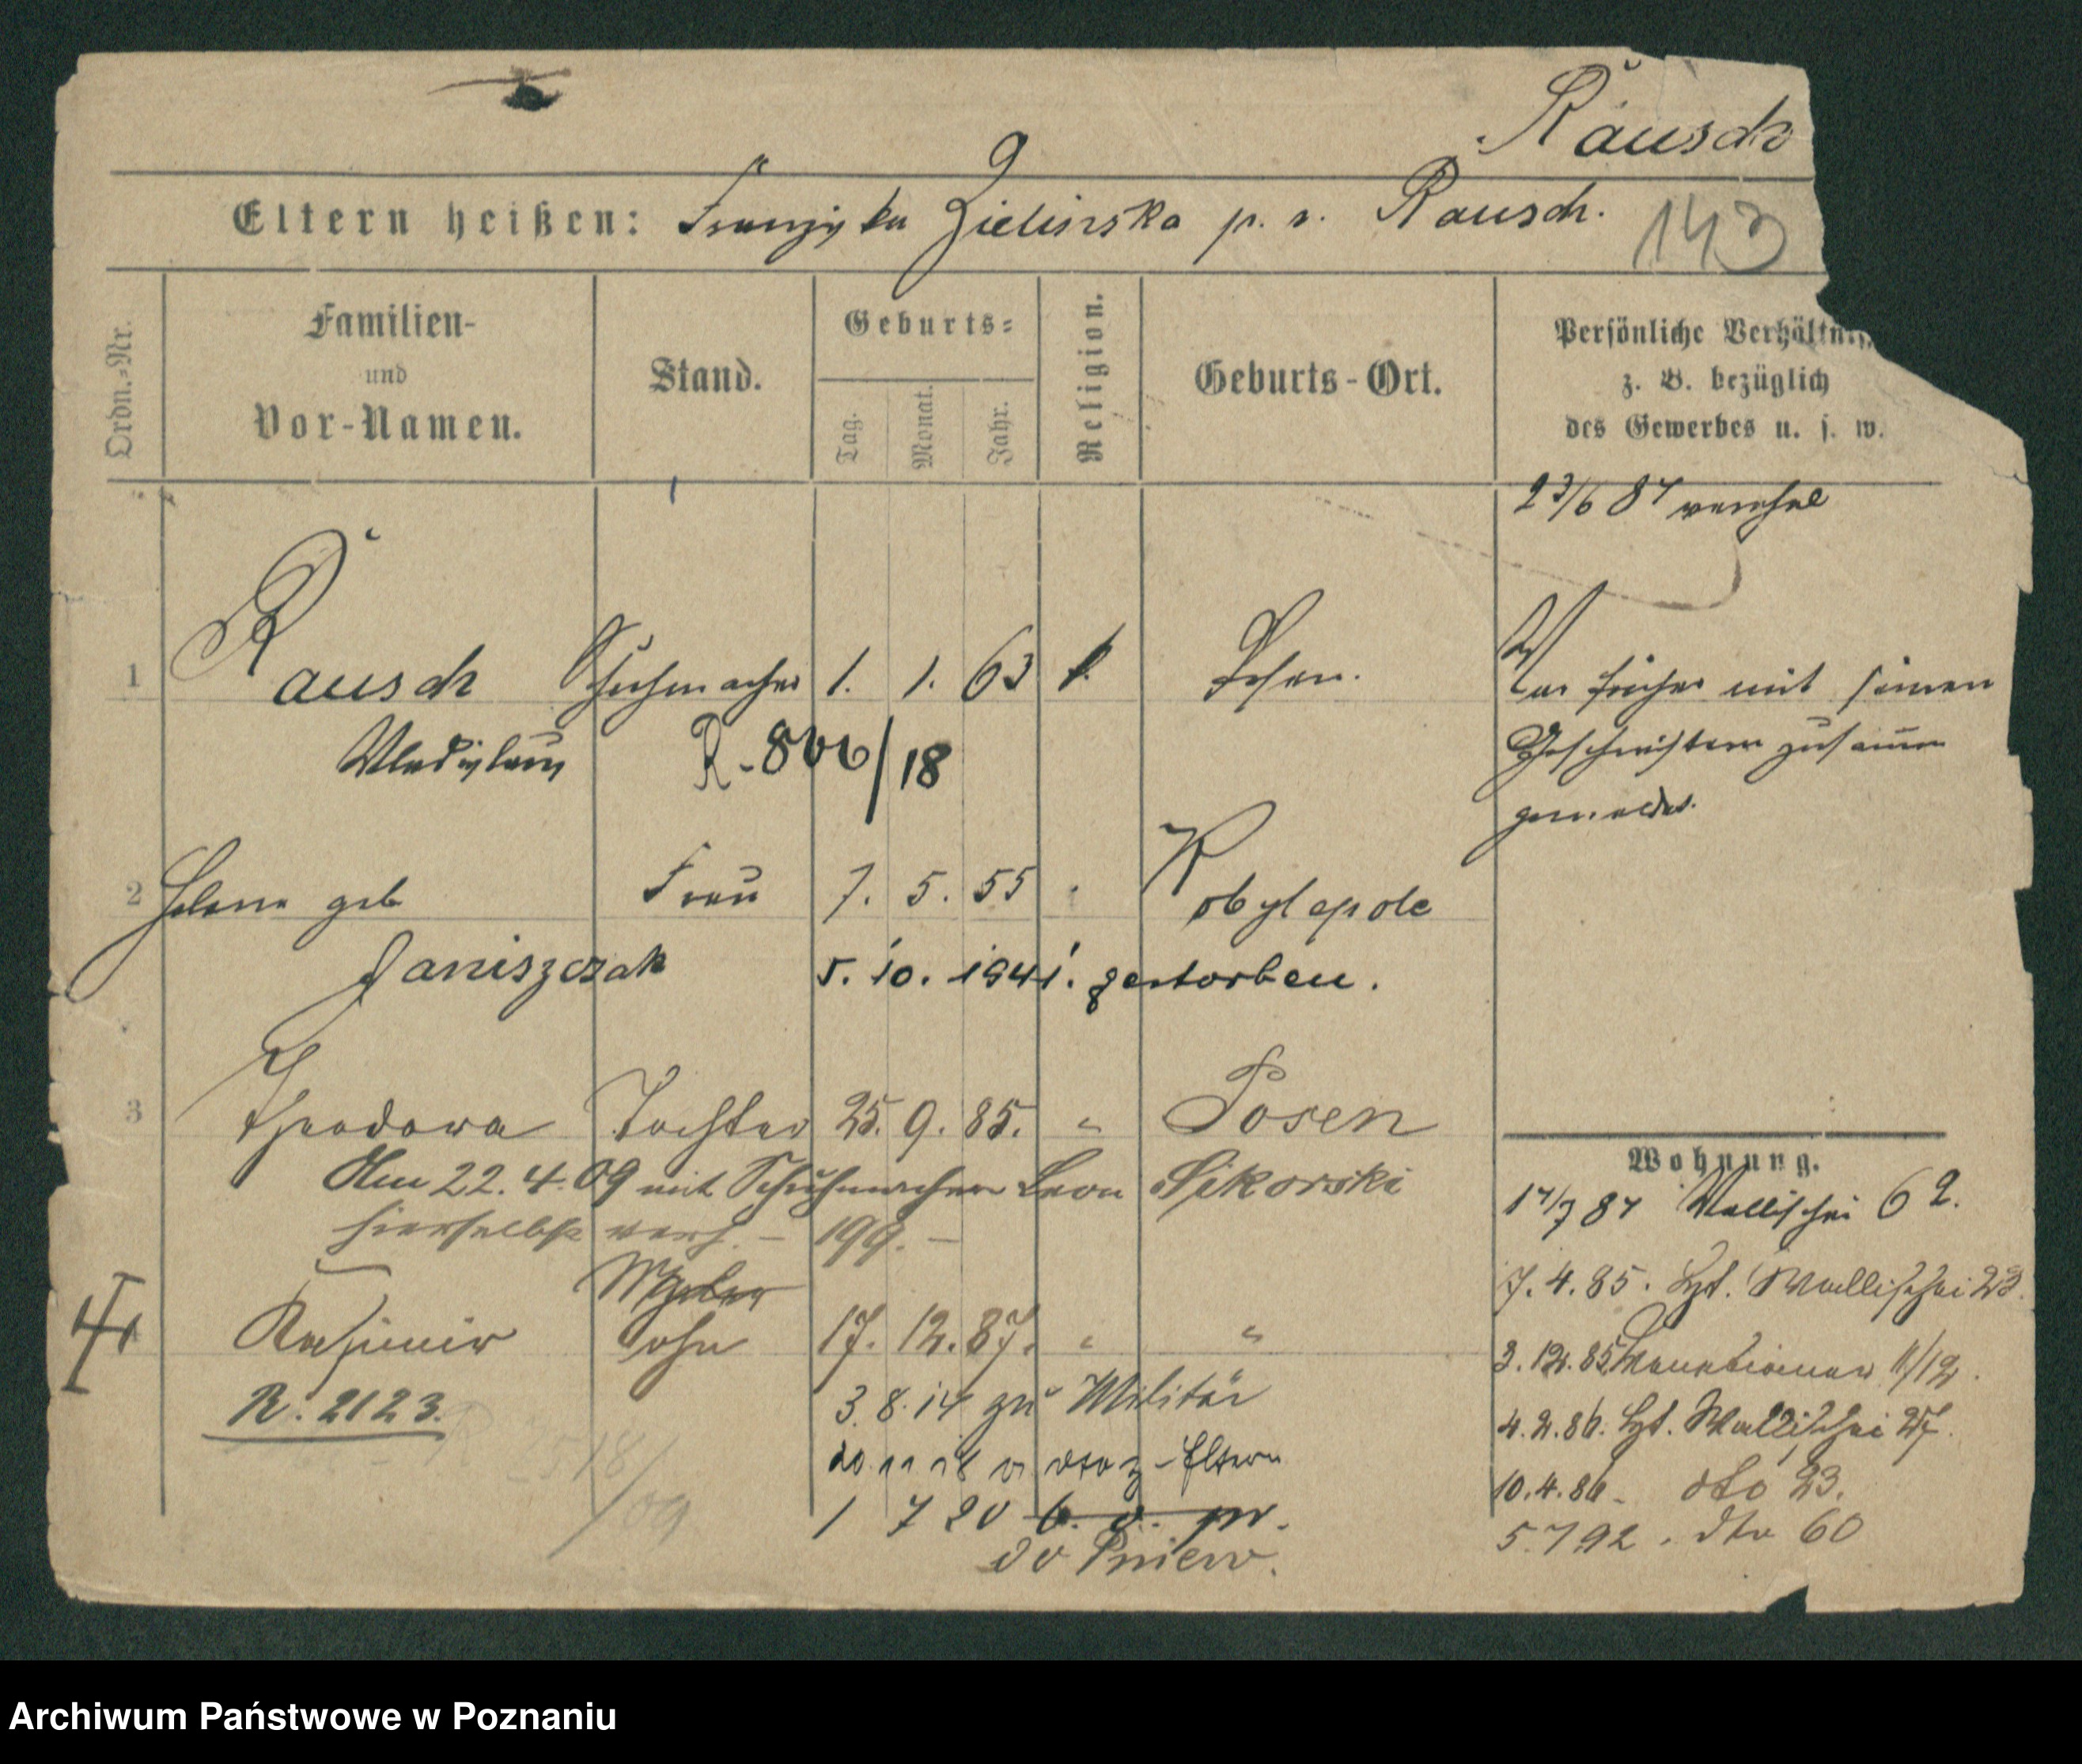 Rausch
9
Eltern heißen: Franziska Zielinska p. v. Rausch.
143
Ordn.-Nr.
Familien-
und
Vor-Namen.
Stand.
Geburts-
Tag.
Monat.
Jahr.
Religion.
Geburts-Ort.
Persönliche Verhältnis
z. B. bezüglich
des Gewerbes u. s. w.
23/6 84
1 Rausch Schuhmacher 1. 1. 63 k. Posen.
Wladislaus R-806/18
War früher mit seinen
Geschwistern zusammen
gemeldet.
2 Helene geb Frau 7. 5. 55 " Kobylepole
Janiszczak 5. 10. 1941. gestorben.
3 Theodora Tochter 25. 9. 85. " Posen
Am 22. 4. 09 mit Schuhmacher Leon Sikorski
hierselbst verh. – 199. –
4 Kasimir Sohn 17. 12. 87. " "
R. 2123.
3. 8. 14 zu Militär
Eltern
1 7 20
do Pniew.
518/09
Wohnung.
14/7 84 Wallischei 62.
7. 4. 85. Zgt. Wallischei 23.
3. 12. 85 11/12.
4. 2. 86. Zgt. Wallischei 27.
10. 4. 86. dto 23.
5. 7 92. dto 60
Archiwum Państwowe w Poznaniu